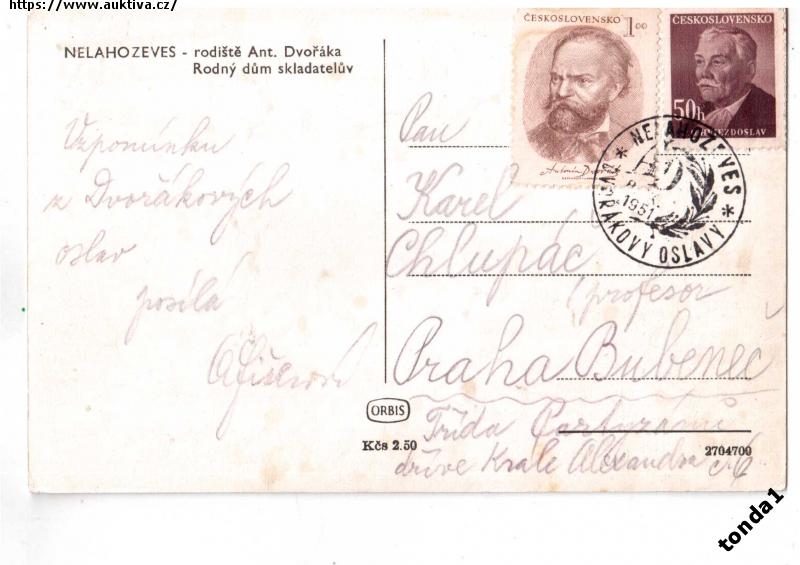 https://www.auktiva.cz/
NELAHOZEVES - rodiště Ant. Dvořáka
Rodný dům skladatelův
ČESKOSLOVENSKO 1.00
Antonín
ČESKOSLOVENSKO
50h
HVIEZDOSLAV
* NELAHOZEVES *
DVOŘÁKOVY OSLAVY
1951
Vzpomínku
z Dvořákových
oslav
posílá
Pan
Karel
Chlupáč
(profesor
Praha Bubeneč
Třída
dříve Krále Alexandra č. 6
ORBIS
Kčs 2.50
2704700
tonda1